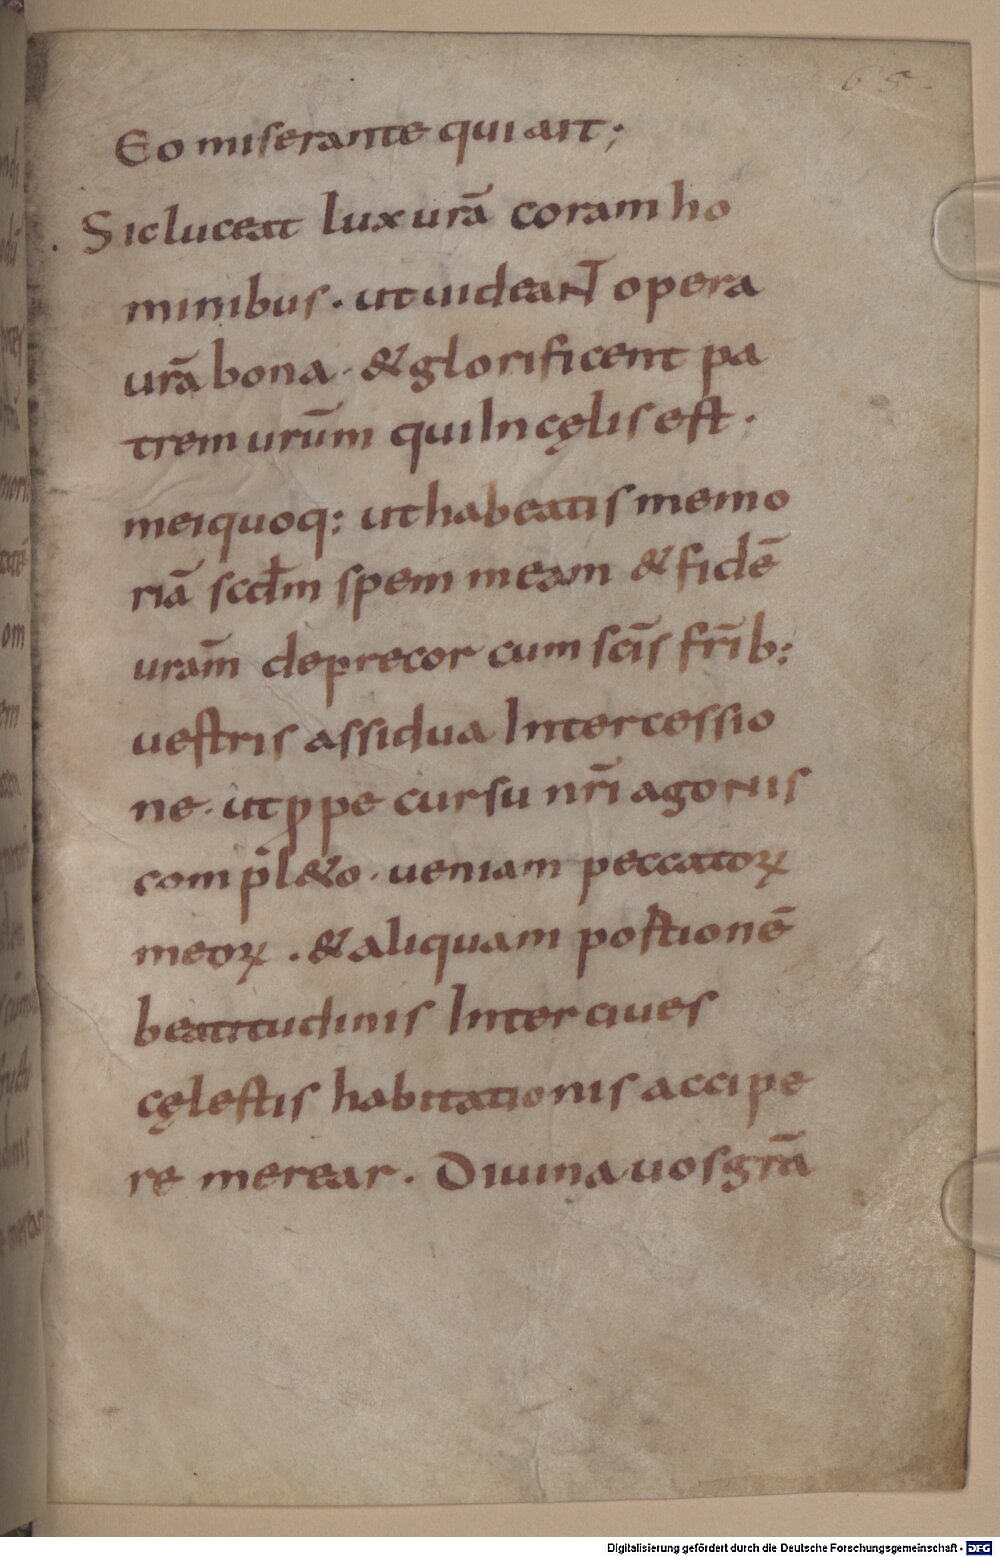 65.
Eo miserante qui ait;
Sic luceat lux urā coram ho
minibus. ut uideaNT opera
urā bona. & glorificent pa
trem urūm qui In cęlis est.
mei quoq; ut habeatis memo
riā scdm̄ spem meam & fidē
uram̄ deprecor cum scīs frīb;
uestris assidua Intercessio
ne. ut p̱ pe cursu nrī agoNis
comp̄l&o. ueniam peccatoꝝ
meoꝝ. & aliquam postionē
beatitudinis Inter ciues
cęlestis habitationis accipe
re merear. Diuina uos grā
Digitalisierung gefördert durch die Deutsche Forschungsgemeinschaft - DFG